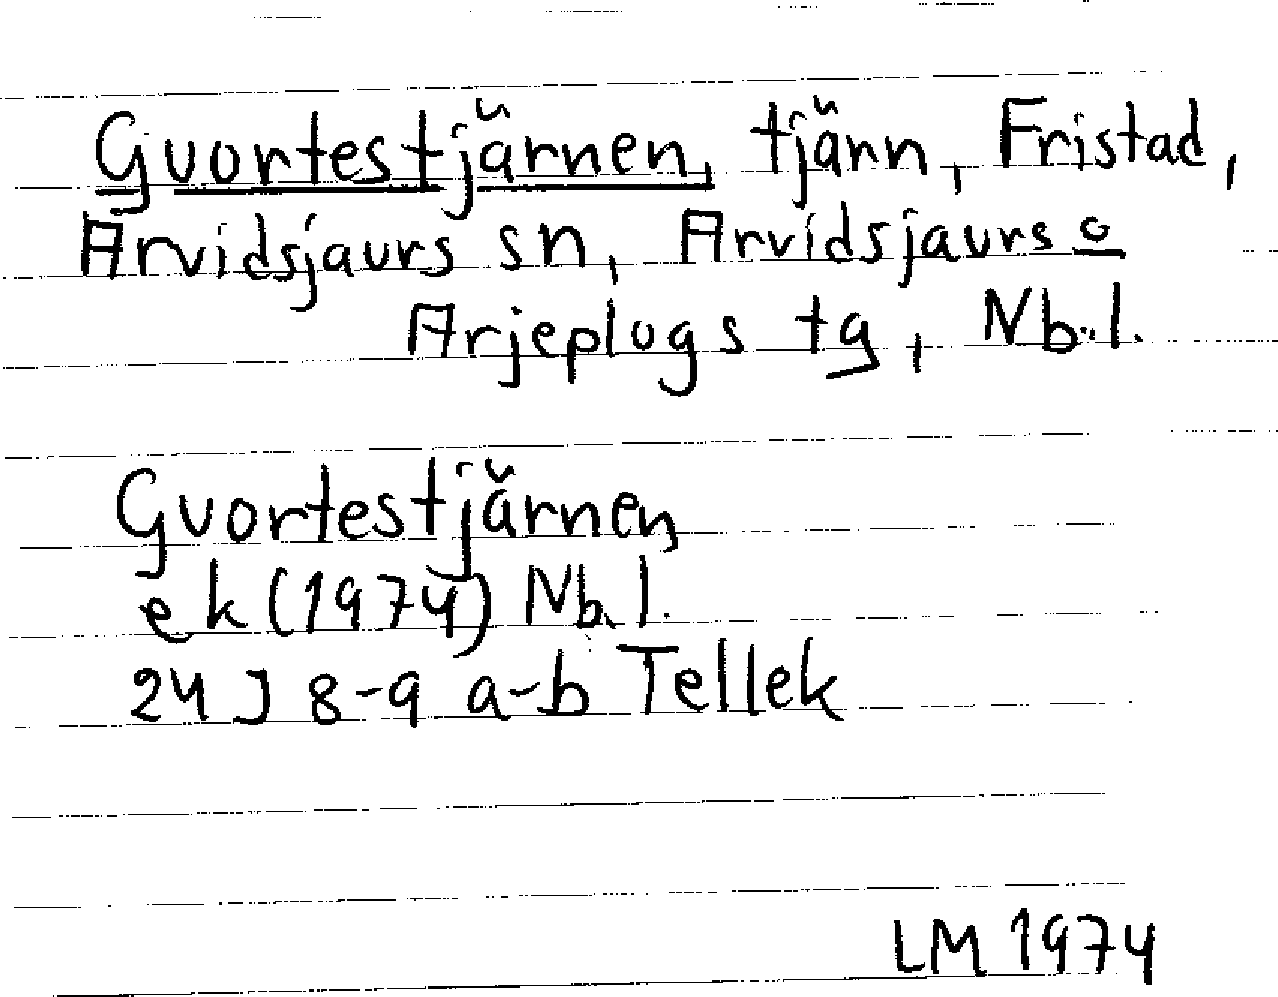 Guortestjärnen, tjänn, Fristad,
Arvidsjaurs sn, Arvidsjaurs o
Arjeplogs tg, Nb.l.
Guortestjärnen
ek (1974) Nb.l.
24 J 8-9 a-b Tellek
LM 1974